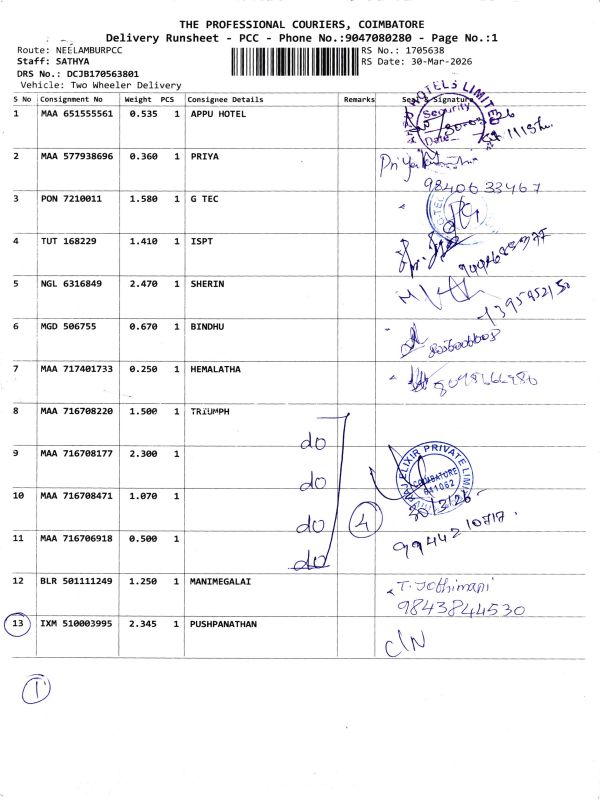 THE PROFESSIONAL COURIERS, COIMBATORE
Delivery Runsheet - PCC - Phone No.:9047080280 - Page No.:1
Route: NEELAMBURPCC RS No.: 1705638
Staff: SATHYA RS Date: 30-Mar-2026
DRS No.: DCJB170563801
Vehicle: Two Wheeler Delivery
S No Consignment No Weight PCS Consignee Details Remarks Seal & Signature
1 MAA 651555561 0.535 1 APPU HOTEL
HOTELS LIMITED
Security
Date
2 MAA 577938696 0.360 1 PRIYA Priya
9840633467
3 PON 7210011 1.580 1 G TEC
4 TUT 168229 1.410 1 ISPT
5 NGL 6316849 2.470 1 SHERIN
6 MGD 506755 0.670 1 BINDHU
7 MAA 717401733 0.250 1 HEMALATHA
8 MAA 716708220 1.500 1 TRIUMPH
do
9 MAA 716708177 2.300 1
do
ELIXIR PRIVATE LIMI
COIMBATORE
641062
10 MAA 716708471 1.070 1
do 4 30/3/26
11 MAA 716706918 0.500 1
do 9944210717
12 BLR 501111249 1.250 1 MANIMEGALAI T. Jothimani
9843844530
13 IXM 510003995 2.345 1 PUSHPANATHAN
C/N
1